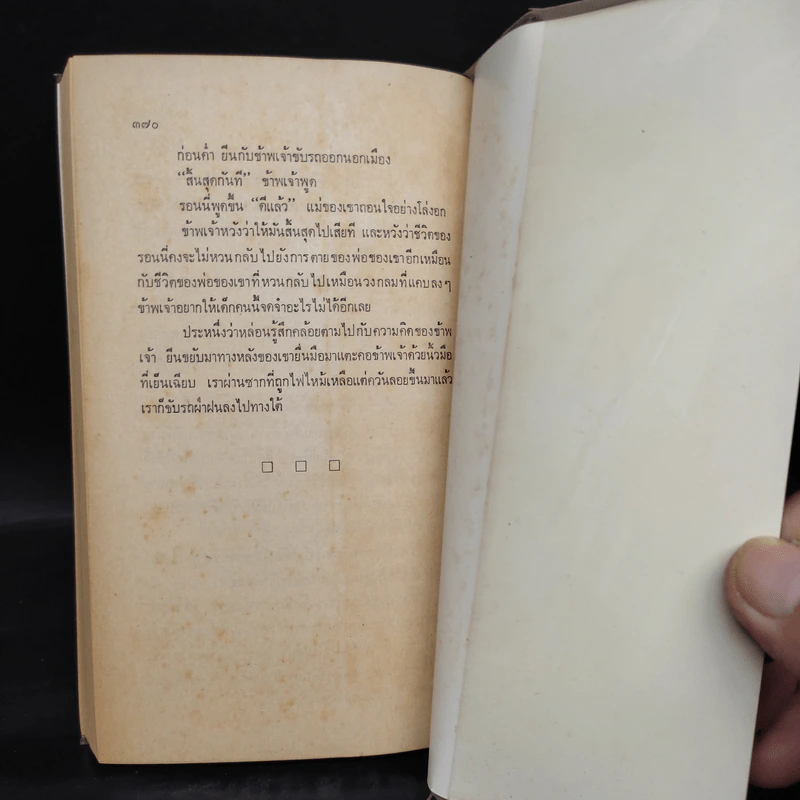 ๓๗๐
ก่อนค่ำ ยีนกับข้าพเจ้าขับรถออกนอกเมือง
“สิ้นสุดกันที” ข้าพเจ้าพูด
รอนนี่พูดขึ้น “ดีแล้ว” แม่ของเขาถอนใจอย่างโล่งอก
ข้าพเจ้าหวังว่าให้มันสิ้นสุดไปเสียที และหวังว่าชีวิตของ
รอนนี่คงจะไม่หวนกลับไปยังการตายของพ่อของเขาอีกเหมือน
กับชีวิตของพ่อของเขาที่หวนกลับไปเหมือนวงกลมที่แคบลงๆ
ข้าพเจ้าอยากให้เด็กคนนี้จดจำอะไรไม่ได้อีกเลย
ประหนึ่งว่าหล่อนรู้สึกคล้อยตามไปกับความคิดของข้าพ
เจ้า ยีนขยับมาทางหลังของเขายื่นมือมาแตะคอข้าพเจ้าด้วยนิ้วมือ
ที่เย็นเฉียบ เราผ่านซากที่ถูกไฟไหม้เหลือแต่ควันลอยขึ้นมาแล้ว
เราก็ขับรถฝ่าฝนลงไปทางใต้